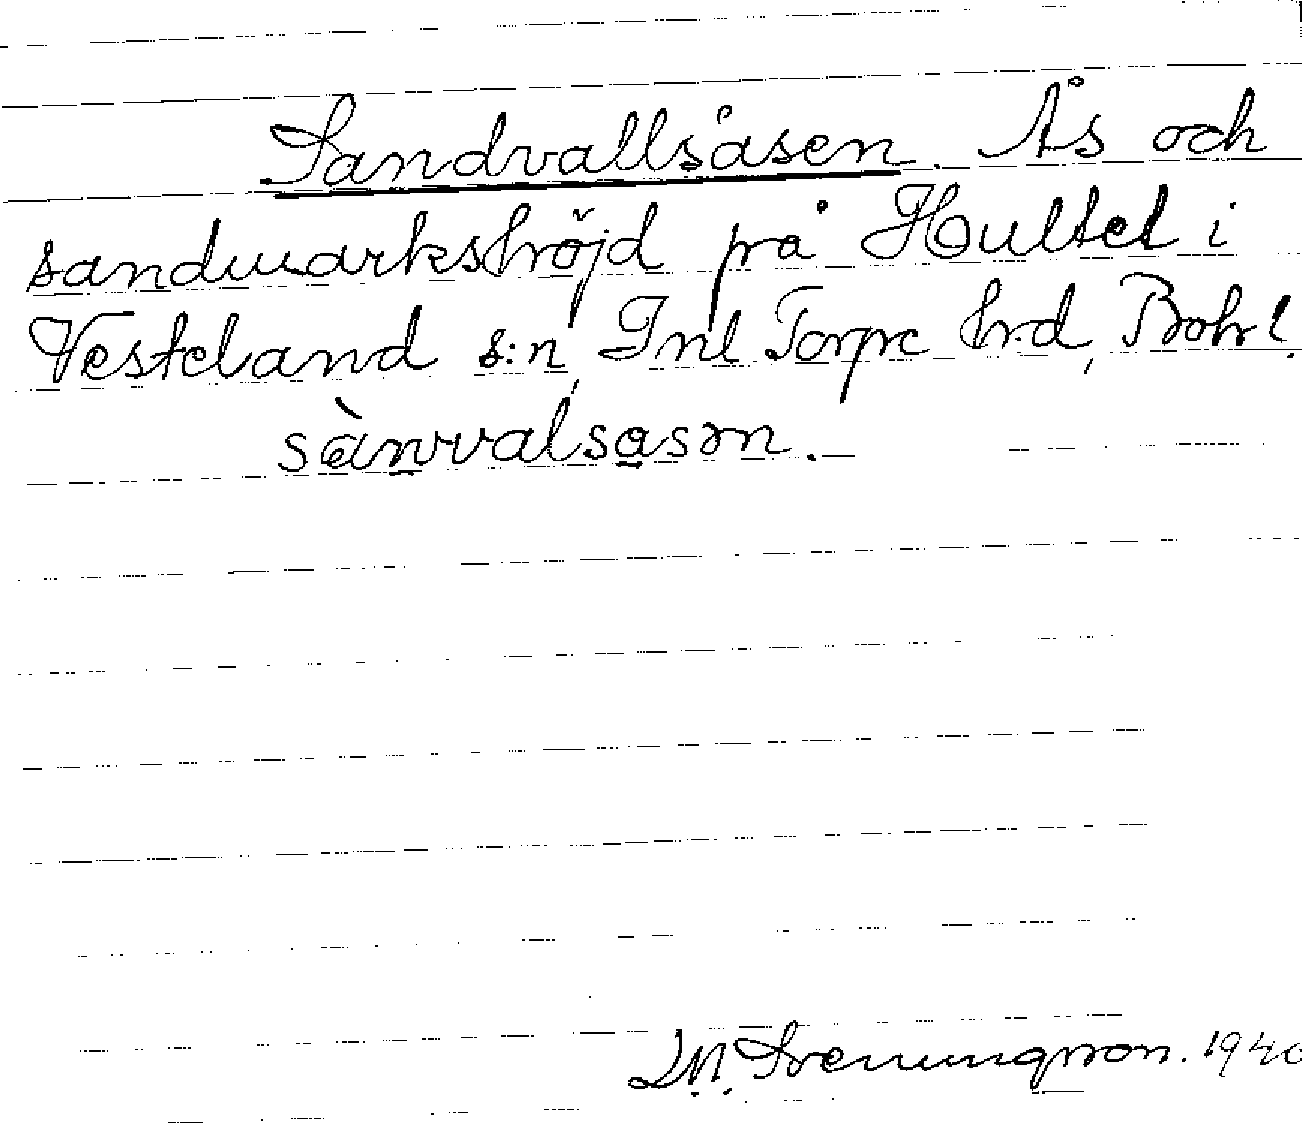 Sandvallsåsen. Ås och
sandmarkshöjd på Hultet i
Vesteland s:n, Inl Torpe hrd, Bohl.
sànvvalsasən.
M. Svenungsson. 1940